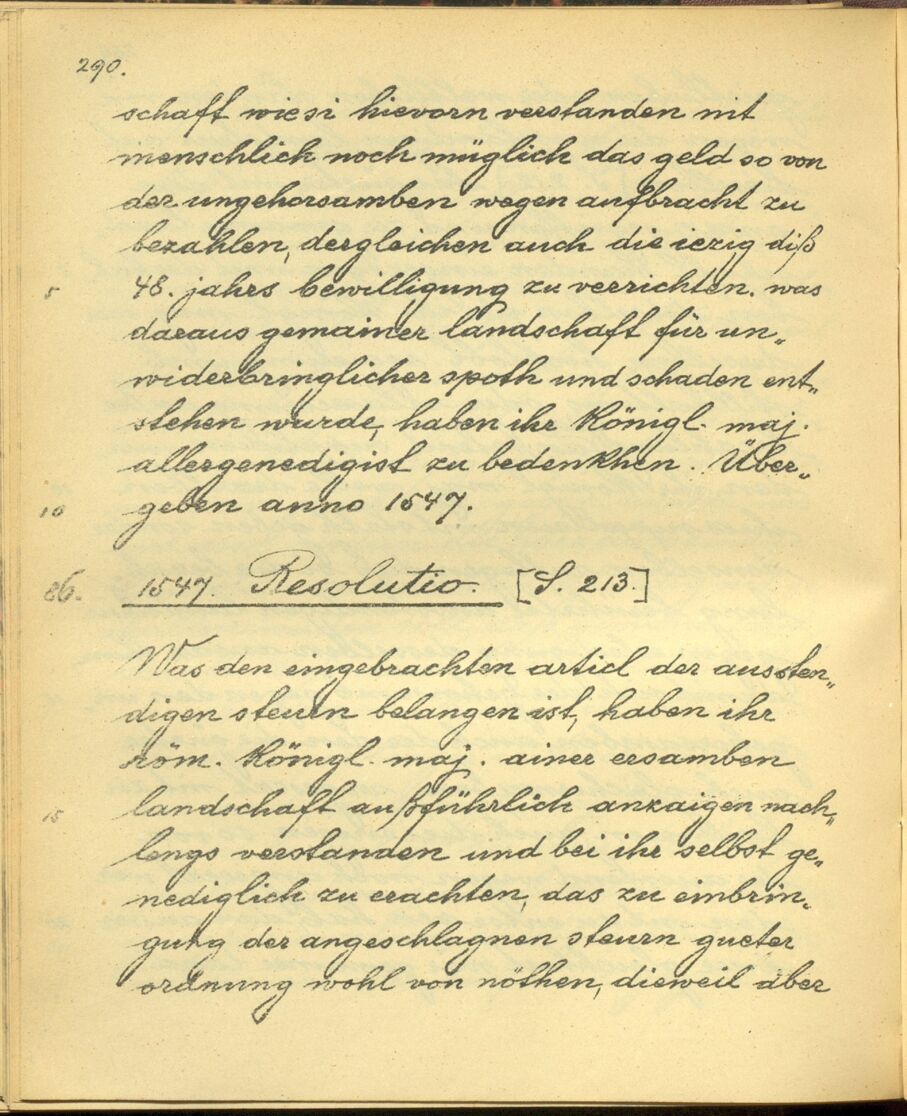 290.
schaft wie si hievorn verstanden nit
menschlich noch müglich das geld so von
der ungehorsamben wegen aufbracht zu
bezahlen, dergleichen auch die iezig diß
5 48. jahrs bewilligung zu verrichten. was
daraus gemainer landschaft für un„
widerbringlicher spoth und schaden ent„
stehen wurde, haben ihr Königl. maj.
allergenedigist zu bedenkhen. Über„
10 geben anno 1547.
86. 1547. Resolutio. [S. 213.]
Was den eingebrachten articl der aussten„
digen steurn belangen ist, haben ihr
röm. Königl. maj. ainer ersamben
15 landschaft außführlich anzaigen nach„
lengs verstanden und bei ihr selbst ge„
nediglich zu erachten, das zu einbrin„
gung der angeschlagnen steurn gueter
ordnung wohl von nöthen, dieweil aber